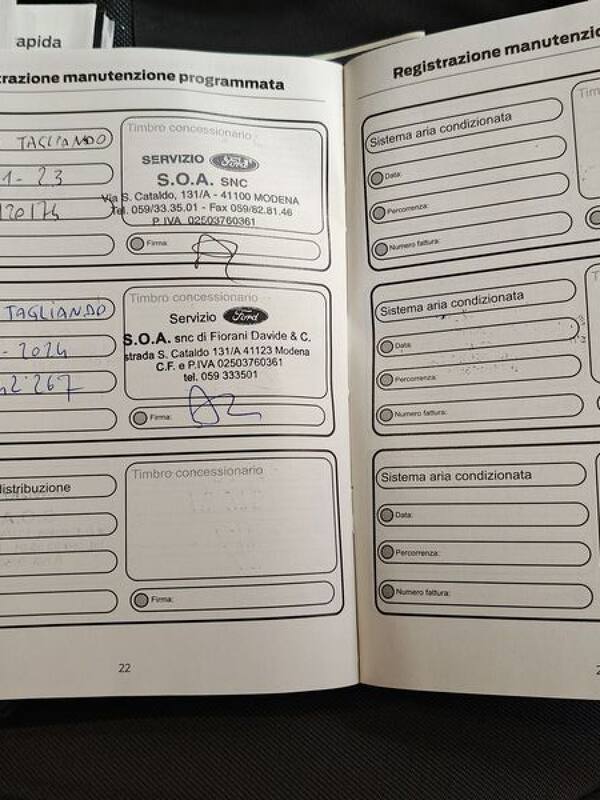 apida
trazione manutenzione programmata
TAGLIANDO
1-23
Timbro concessionario
SERVIZIO Ford
S.O.A. SNC
Via S. Cataldo, 131/A - 41100 MODENA
Tel. 059/33.35.01 - Fax 059/82.81.46
P.IVA 02503760361
Firma:
TAGLIANDO
-2024
2'267
Timbro concessionario
Servizio Ford
S.O.A. snc di Fiorani Davide & C.
strada S. Cataldo 131/A 41123 Modena
C.F. e P.IVA 02503760361
tel. 059 333501
Firma:
distribuzione
Timbro concessionario
Firma:
22
Registrazione manutenzio
Sistema aria condizionata
Tim
Data:
Percorrenza:
Numero fattura:
Sistema aria condizionata
Data:
Percorrenza:
Numero fattura:
Sistema aria condizionata
Data:
Percorrenza:
Numero fattura: